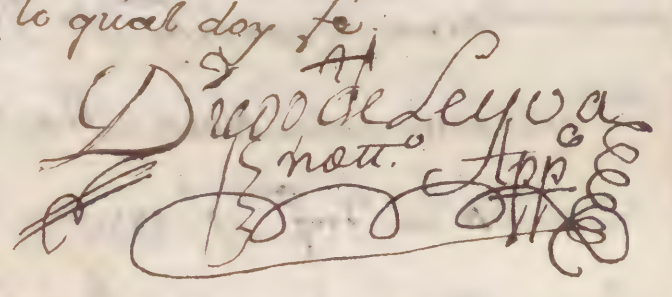 lo qual doy fe
Diego de Leyva
nott.º Appº